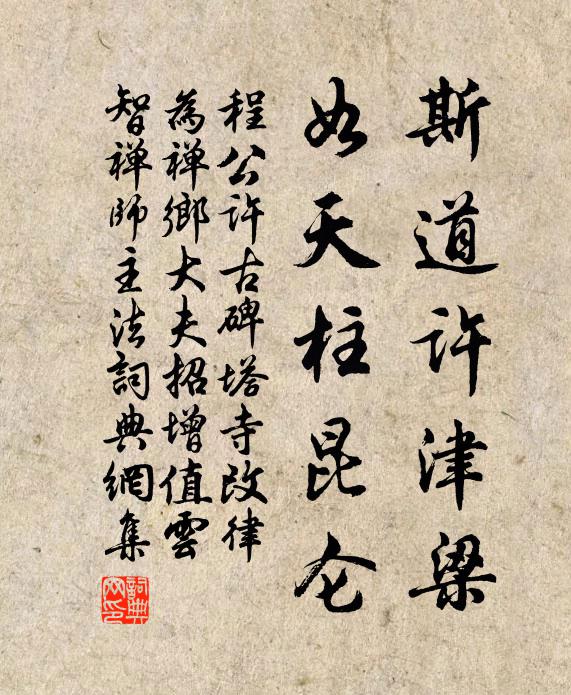 斯道许津梁
如天柱昆仑
程公许古碑塔寺改律
為禅鄉大夫招增值雲
智禅師主法詞典網集
詞典
网印